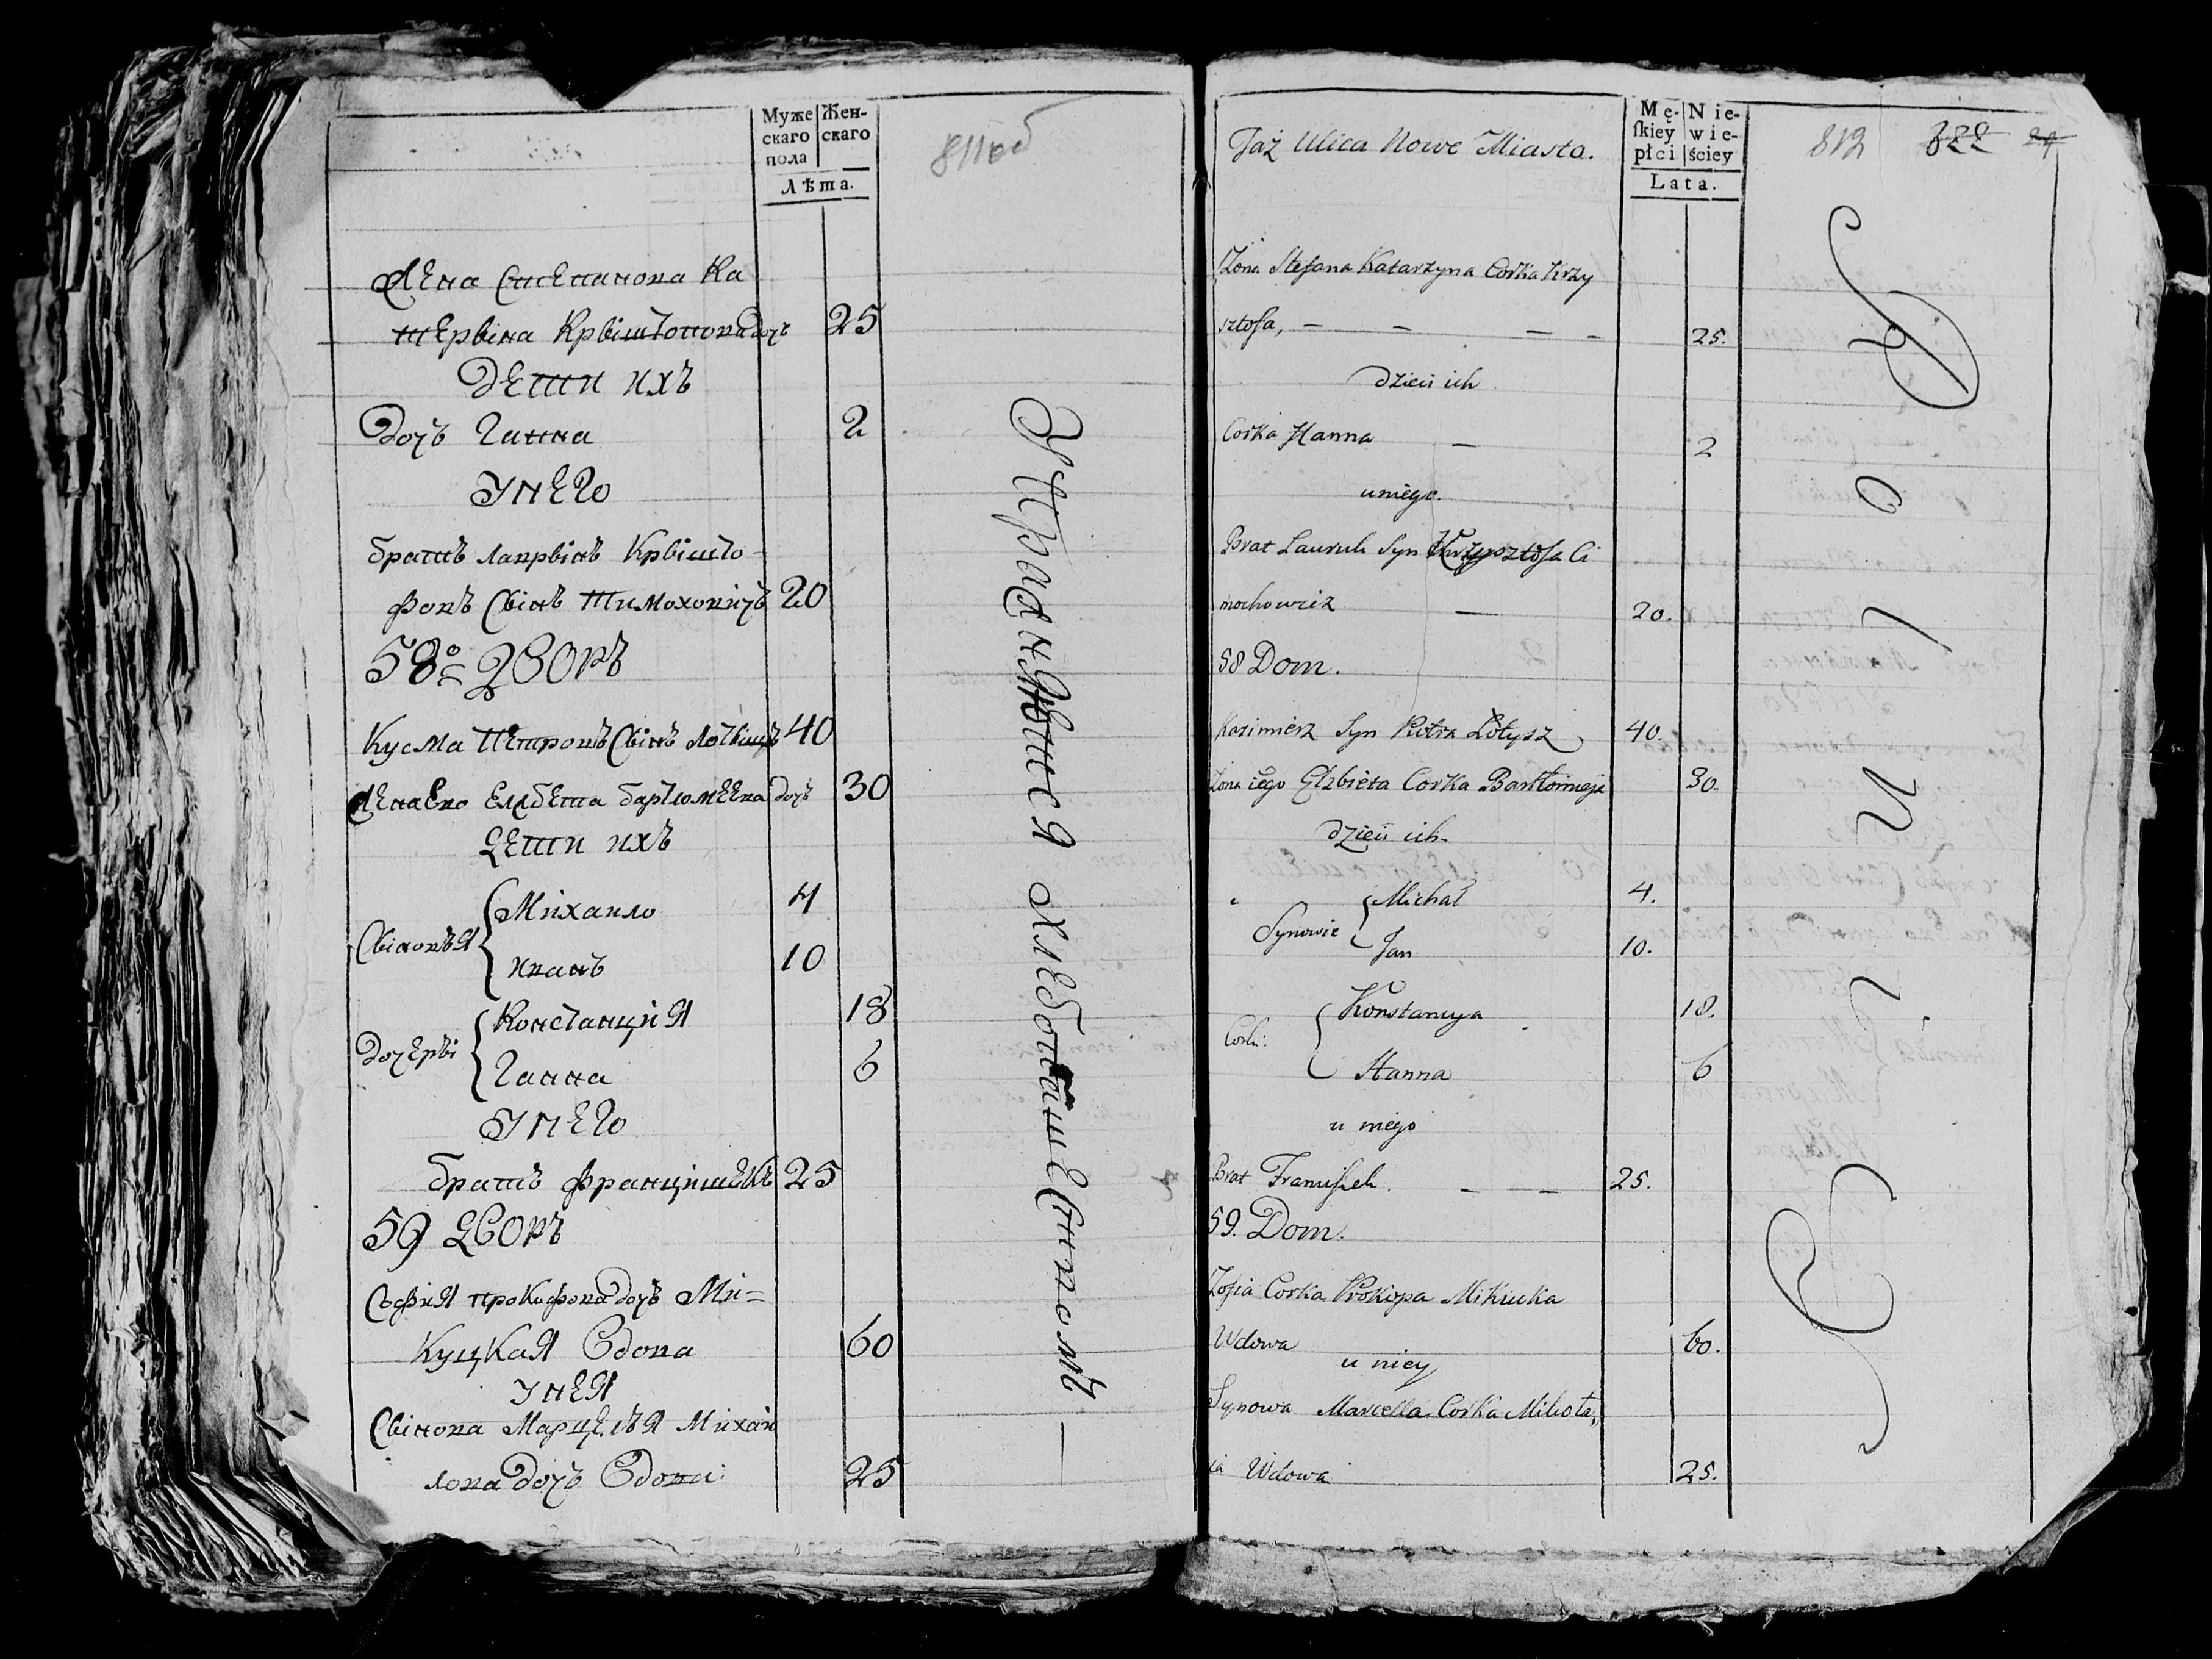 Муже
скаго
пола
Жен-
скаго
Лѣта.
811об
Жена Степанова Ка
терына Крыштопова дочь 25
Дети ихъ
Дочь Ганна 2
У него
братъ лаврынъ Крышто
фовъ Сынъ Тимоховичъ 20
58º дворъ
Кусма Петровъ Сынъ Лотышъ 40
Жена Ево Елзбета бартломеева дочь 30
Дети ихъ
Сыновья { Михаило 4
иванъ 10
Дочеры { Констанция 18
Ганна 6
У него
братъ францишекъ 25
59 дворъ
София прокофова дочь Ми=
куцкая Вдова 60
У нея
Сынова Марцелья Михаи
лова дочь Вдова 25
Упражняются хлебопашеством —
Taż Ulica Nowe Miasto.
Mę-
skiey
płci
Nie-
wie-
ściey
Lata.
812 322 24
Zona Stefana Katarzyna Corka Krzy
sztofa, – – – – 25.
dzieci ich
Corka Hanna – 2
u niego.
Brat Lauruk Syn Krzysztofa Ci
mochowicz – 20.
58 Dom.
Kazimierz Syn Piotra Łotysz 40.
Zona iego Elzbieta Corka Bartłomieja 30.
dzieci ich
Synowie { Michał 4.
Jan 10.
Corki: { Konstancya 18.
Hanna 6
u niego
Brat Franciszek. – – 25.
59. Dom.
Zofia Corka Prokopa Mikucka
Wdowa 60.
u niey
Synowa Marcella Corka Michała,
ia Wdowa 25.
Rolnicy